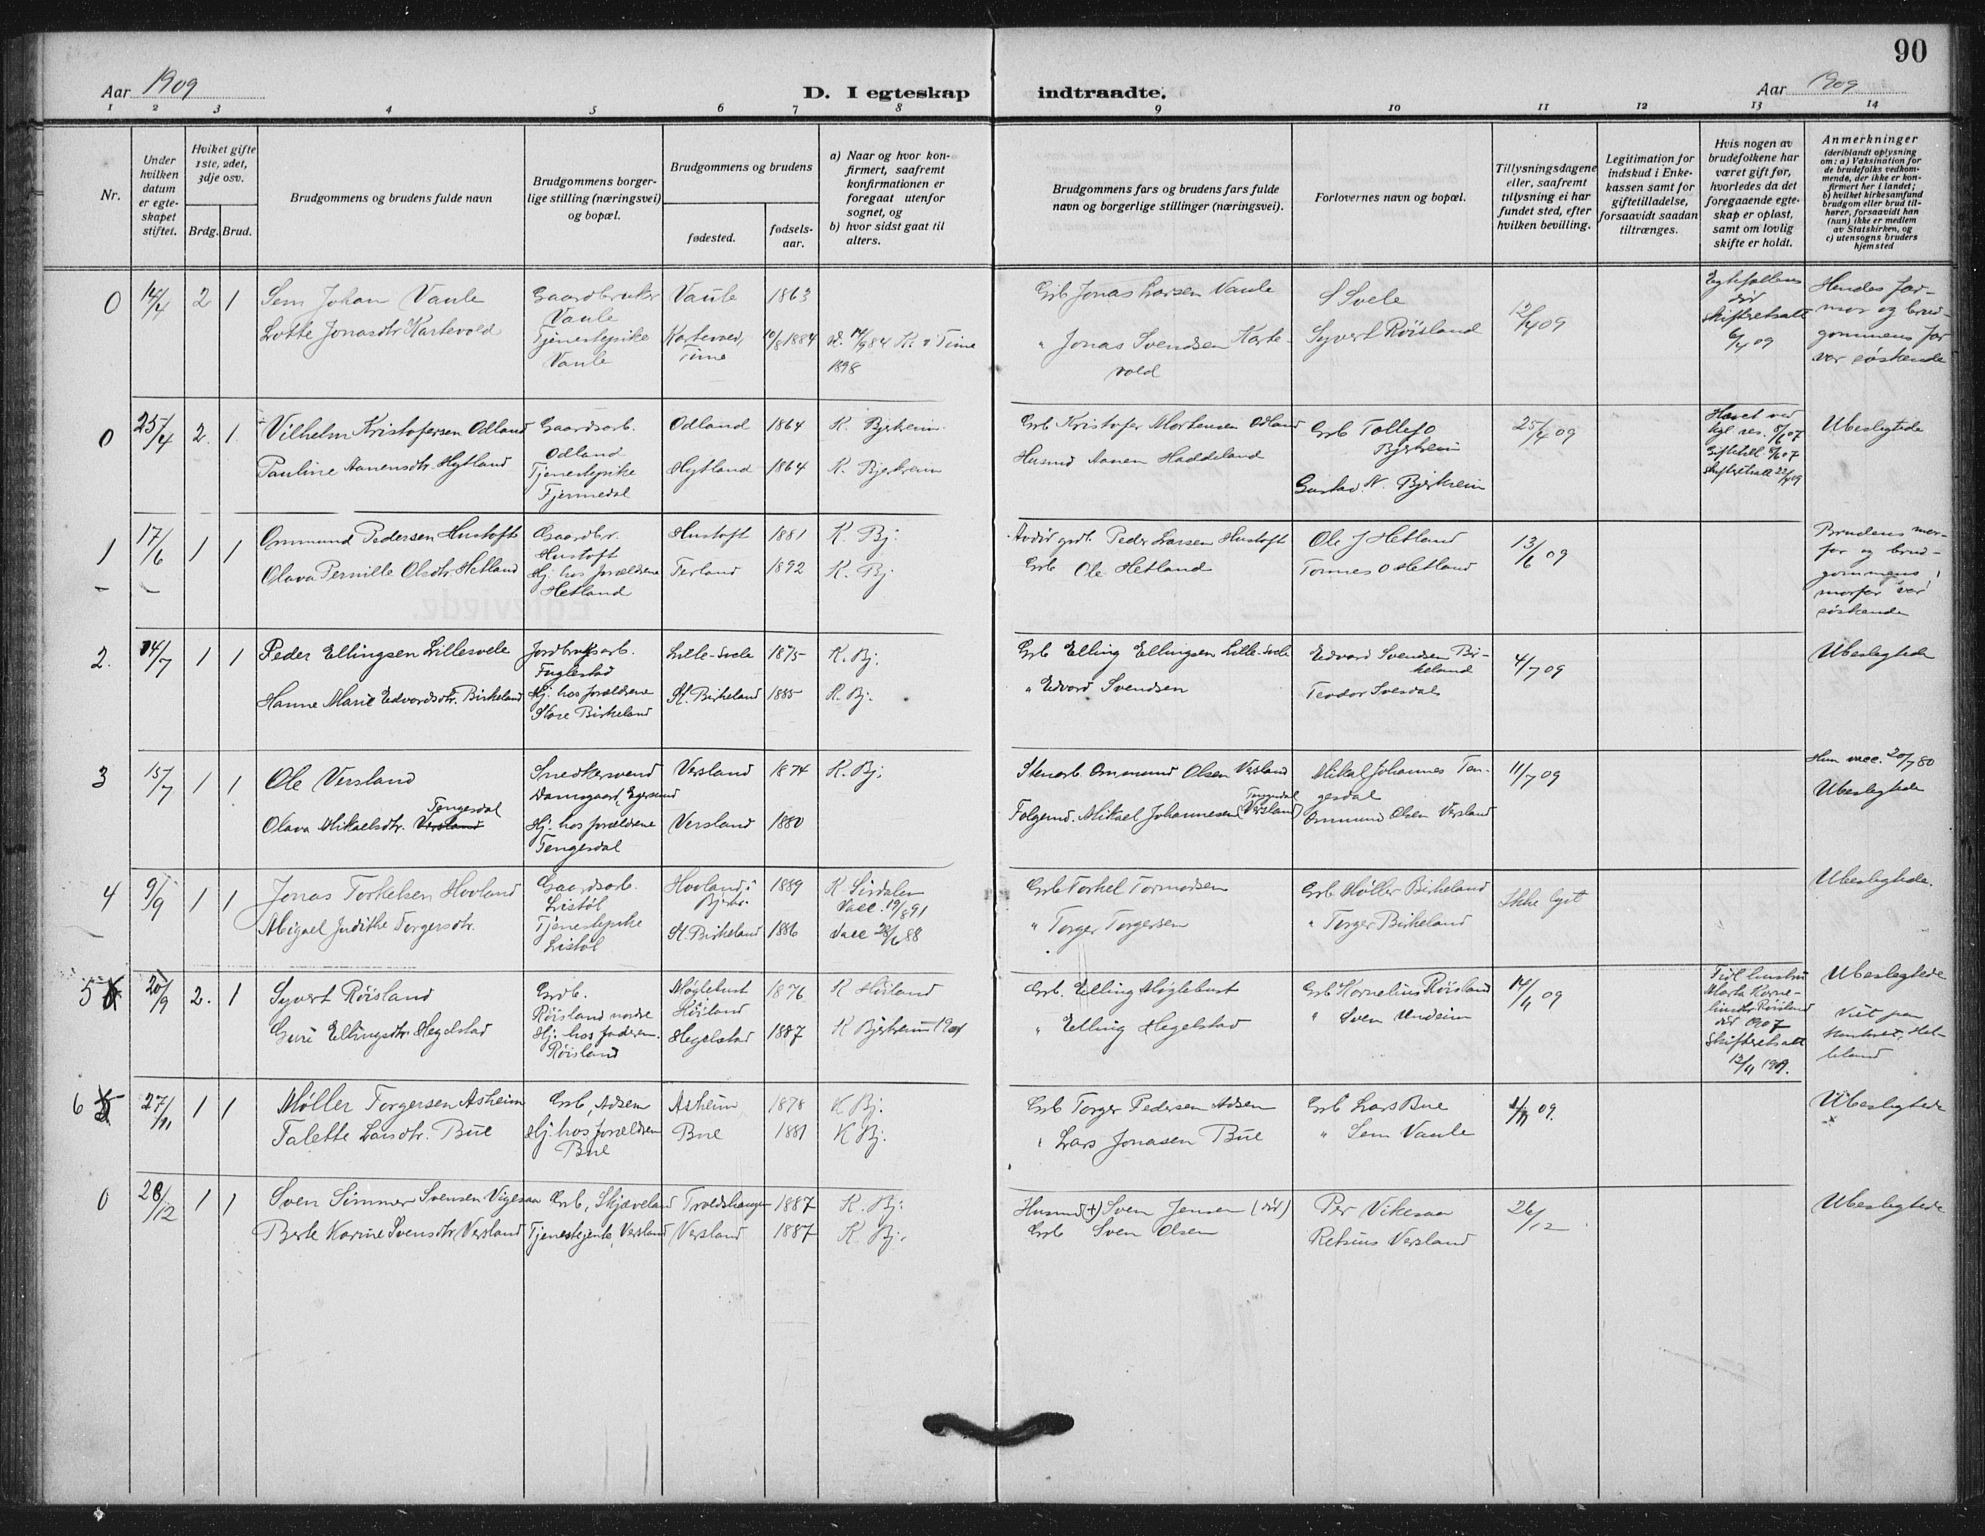 90
Aar 1909
D. I egteskap indtraadte.
Aar 1909
1 2 3 4 5 6 7 8 9 10 11 12 13 14
Nr.
Under hvilken datum er egteskapet stiftet.
Hvilket gifte 1ste, 2det, 3dje osv.
Brdg. Brud.
Brudgommens og brudens fulde navn
Brudgommens borgerlige stilling (næringsvei) og bopæl.
Brudgommens og brudens
fødested.
fødselsaar.
a) Naar og hvor konfirmert, saafremt konfirmationen er foregaat utenfor sognet, og
b) hvor sidst gaat til alters.
Brudgommens fars og brudens fars fulde navn og borgerlige stillinger (næringsvei).
Forlovernes navn og bopæl.
Tillysningsdagene eller, saafremt tillysning ei har fundet sted, efter hvilken bevilling.
Legitimation for indskud i Enkekassen samt for giftetilladelse, forsaavidt saadan tiltrænges.
Hvis nogen av brudefolkene har været gift før, hvorledes da det foregaaende egteskap er opløst, samt om lovlig skifte er holdt.
Anmerkninger
(deriblandt oplysning om: a) Vaksination for de brudefolks vedkommende, der ikke er konfirmert her i landet; b) hvilket kirkesamfund brudgom eller brud tilhører, forsaavidt han (hun) ikke er medlem av Statskirken, og c) utensogns bruders hjemsted
0 14/4 2 1 Sem Johan Vaule Gaardbruker Vaule Vaule 1863 Grb Jonas Larsen Vaule S Svele 12/4 09 Egtefællens død Skifteretsatt 6/4 09 Hendes farmor og brudgommens far var søskende
Lotte Jonasdtr. Kartevold Tjenestepike Vaule Kartevold, Time 10/8 1884 K. i Time 1898 " Jonas Svendsen Kartevold Syvert Røisland
0 25/4 2. 1. Vilhelm Kristofersen Odland Gaardsarb. Odland Odland 1864 K. Bjerkreim Grb Kristofer Mortensen Odland Grb Tollef O Bjerkreim 25/4 09 Hævet ved kgl. res. Ubeslegtede
Pauline Aanensdtr. Hytland Tjenestepike Hytland 1864 K. Bjerkreim Husmd Aanen Haddeland Gustav N. Bjerkreim
1 17/6 1 1 Ommund Pedersen Hustoft Gaardbr. Hustoft Hustoft 1881 K. Bj: Peder Larsen Hustoft Ole J Hetland 13/6 09 Brudens morfar og brudgommens morfar var søskende
Olava Pernille Olsdtr. Hetland Hj. hos forældrene Hetland Terland 1892 K. Bj Grb Ole Hetland Tønnes O Hetland
2. 14/7 1 1 Peder Ellingsen Lillesvele Jordbruksarb. Fuglestad Lille-Svele 1875 K. Bj. Grb Elling Ellingsen Lille-Svele Edvard Svendsen Birkeland 4/7 09 Ubeslegtede
Hanne Marie Edvardsdtr. Birkeland Hj. hos forældrene Store Birkeland St. Birkeland 1885 K. Bj. " Edvard Svendsen Teodor Svesdal
3 15/7 1 1 Ole Versland Snedkersvend Damsgaard, Egersund Versland 1874 K. Bj; Stenarb. Ommund Olsen Versland Mikal Johannes Tengesdal 11/7 09 Hun vacc. 20/7 80 Ubeslegtede
Olava Mikaelsdtr. Versland Tengesdal Hj. hos forældrene Tengesdal Versland 1880 Folgemd. Mikael Johannesen (Versland) Ommund Olsen Versland
4 9/9 1 1 Jonas Torkelsen Hovland Gaardsarb. Listøl Hovland i Bjerkr. 1889 K Sirdalen Vacc. 19/8 91 Grb Torkel Tormodsen Grb Møller Birkeland Ikke lyst Ubeslegtede.
Abigael Judithe Torgersdtr. Tjenestepike Listøl St. Birkeland 1886 Vacc 28/6 88 " Torger Torgersen " Torger Birkeland
5 20/9 2. 1 Syvert Røisland Grdb. Røisland nordre Møglebust Høiland 1876 K Høiland Grb. Elling Møglebust Grb Kornelius Røisland 14/9 09 død 1907 Skifteretsatt Ubeslegtede
Guri Ellingsdtr. Hegelstad Hj. hos faderen Røisland Hegelstad 1887 K Bjerkreim " Elling Hegelstad " Sven Undeim Viet paa
6 27/11 1 1 Møller Torgersen Asheim Grb, Adsen Asheim 1878 K Bj. Grb Torger Pedersen Adsen Grb Lars Bue 09. Ubeslegtede
Talette Larsdtr. Bue Hj. hos forældren Bue Bue 1881 K Bj. " Lars Jonasen Bue " Sem Vaule
0 28/12 1 1 Sven Simmer Svensen Vigesaa Grb, Skjæveland Troldshaugen 1887 K. Bj: Husmd (+) Sven Jensen (død) Per Vikesaa 26/12 Ubeslegtede
Berte Karine Svensdtr Versland Tjenestejente, Versland Versland 1887 K. Bj: Grb Sven Olsen Retsius Versland